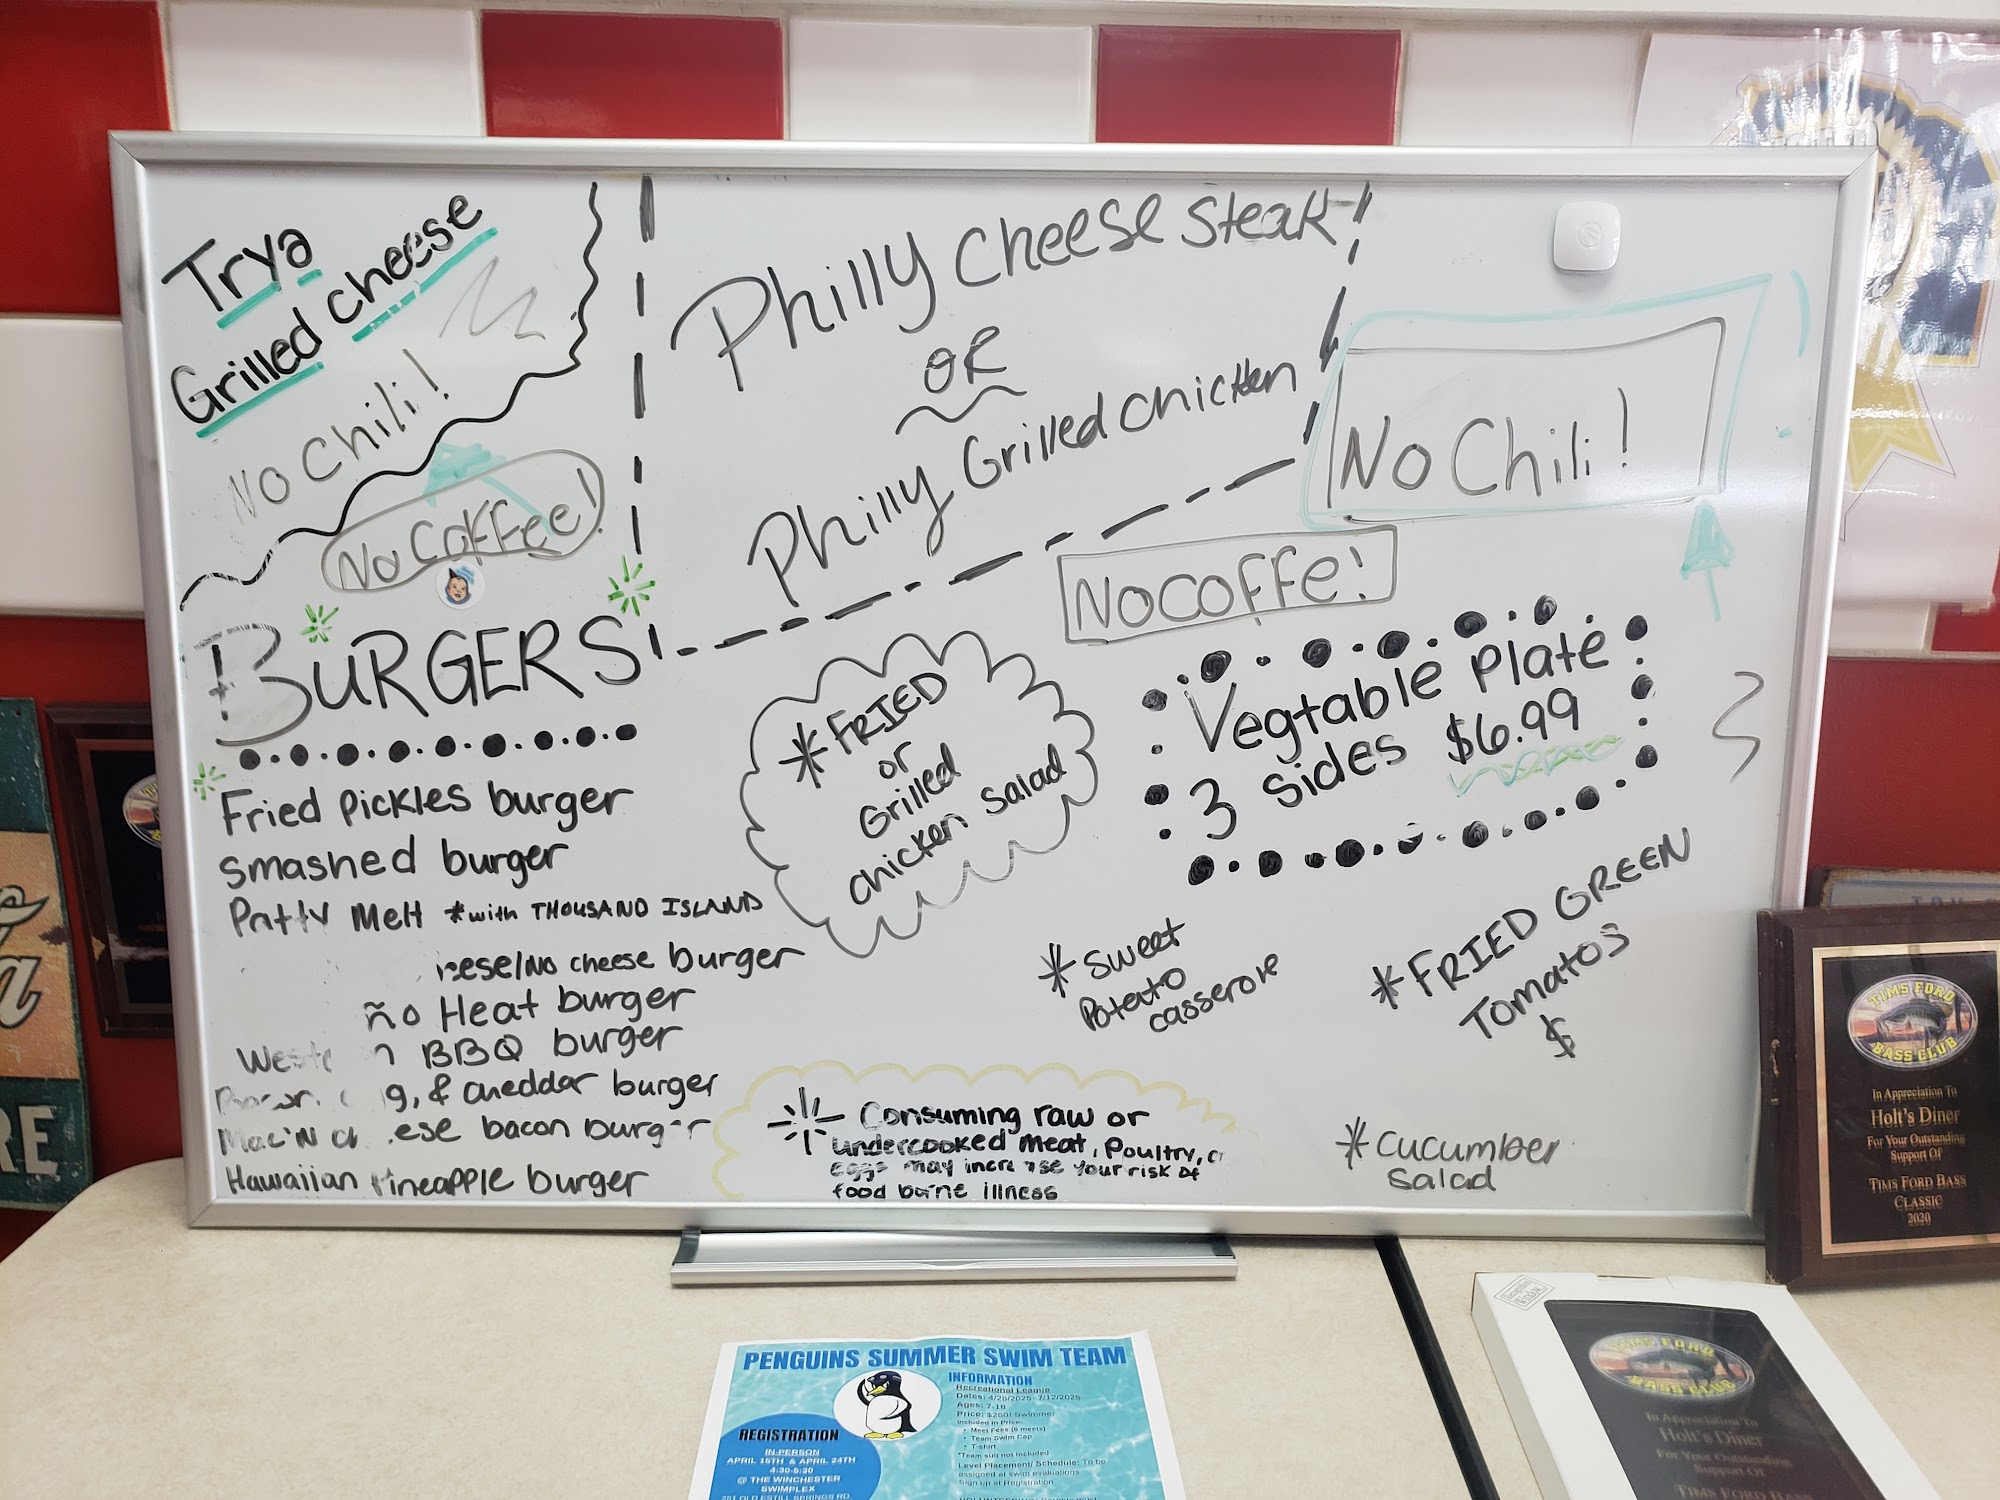 Try a
Grilled cheese
No Chili!
No Coffee!
Philly Cheese Steak!
OR
Philly Grilled Chicken
No Chili!
No COFFE!
BURGERS
Fried pickles burger
Smashed burger
Patty Melt *with THOUSAND ISLAND
/No cheese burger
Heat burger
BBQ burger
& cheddar burger
bacon burger
Hawaiian Pineapple burger
*FRIED
or
Grilled
chicken salad
Vegtable Plate
3 sides $6.99
*Sweet
Potato
casserole
*FRIED GREEN
Tomatos
$
*Consuming raw or
undercooked meat, Poultry,
eggs may increase your risk of
food borne illness
*Cucumber
Salad
TIMS FORD
BASS CLUB
In Appreciation To
Holt's Diner
For Your Outstanding
Support Of
TIMS FORD BASS
CLASSIC
2020
TIMS FORD
BASS CLUB
In Appreciation To
Holt's Diner
For Your Outstanding
Support Of
TIMS FORD BASS
PENGUINS SUMMER SWIM TEAM
INFORMATION
Recreational League
Dates: 4/28/2025- 7/12/2025
Ages: 7-18
Price: $250/ Swimmer
Included in Price-
• Meet Fees (6 meets)
• Team Swim Cap
• T-shirt
*Team suit not included
Level Placement/ Schedule: To be
assigned at swim evaluations
Sign up at Registration
REGISTRATION
IN-PERSON
APRIL 15TH & APRIL 24TH
4:30-5:30
@ THE WINCHESTER
SWIMPLEX
251 OLD ESTILL SPRINGS RD.